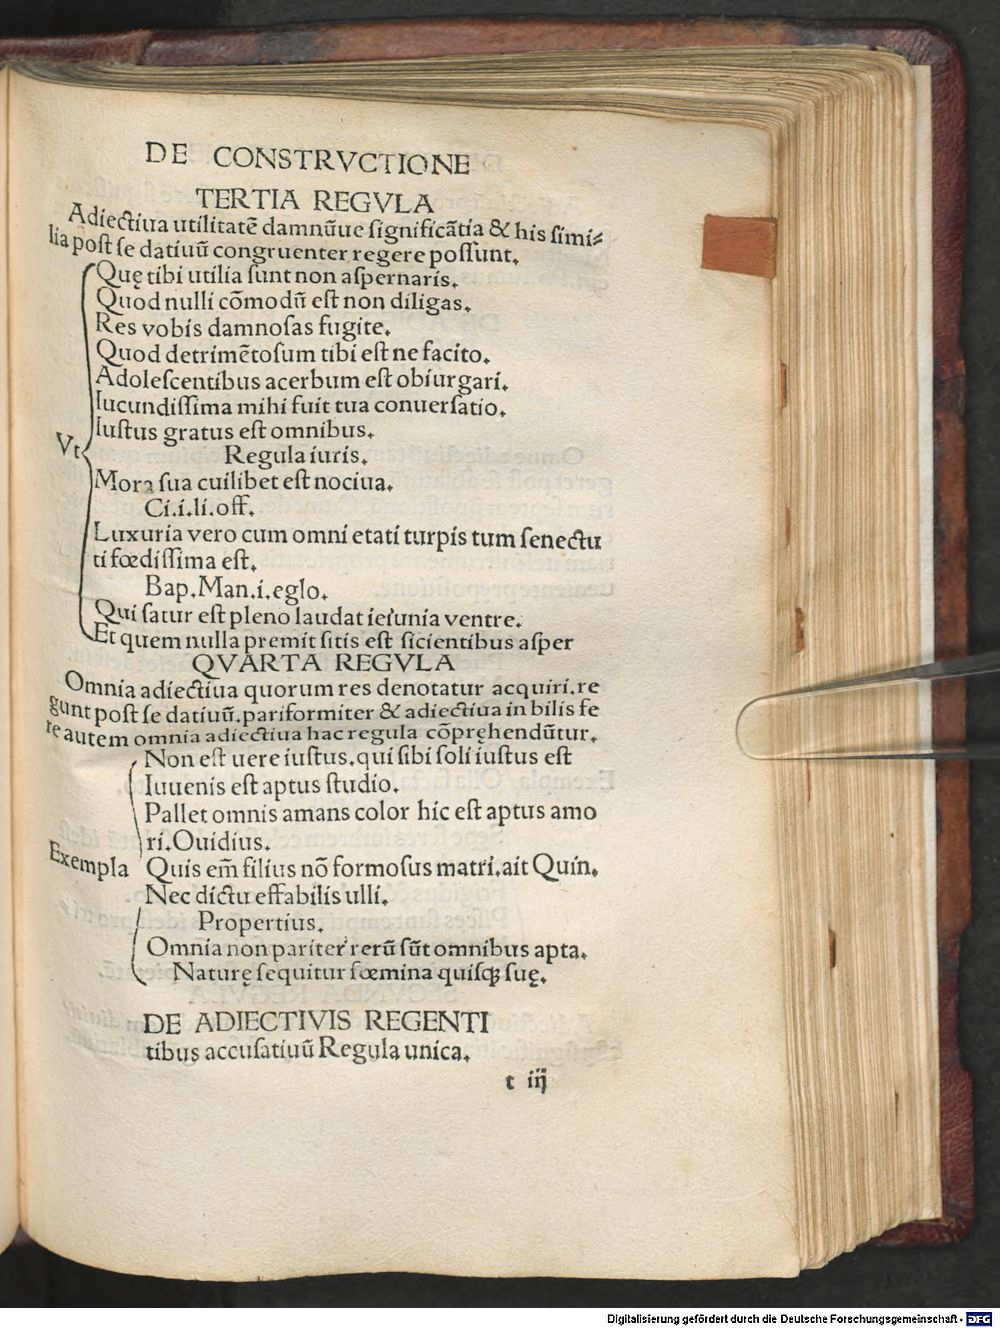 DE CONSTRVCTIONE
TERTIA REGVLA
Adiectiua utilitatē damnūue significātia & his simi⸗
lia post se datiuū congruenter regere possunt.
Quę tibi utilia sunt non aspernaris.
Quod nulli cōmodū est non diligas.
Res vobis damnosas fugite.
Quod detrimētosum tibi est ne facito.
Adolescentibus acerbum est obiurgari.
Iucundissima mihi fuit tua conuersatio.
Iustus gratus est omnibus.
Vt
Regula iuris.
Mora sua cuilibet est nociua.
Ci.i.li.off.
Luxuria vero cum omni etati turpis tum senectu
ti fœdissima est.
Bap.Man.i.eglo.
Qui satur est pleno laudat ieiunia ventre.
Et quem nulla premit sitis est sicientibus asper
QVARTA REGVLA
Omnia adiectiua quorum res denotatur acquiri.re
gunt post se datiuū.pariformiter & adiectiua in bilis fe
re autem omnia adiectiua hac regula cōpręhendūtur.
Non est uere iustus.qui sibi soli iustus est
Iuuenis est aptus studio.
Pallet omnis amans color hic est aptus amo
ri.Ouidius.
Exempla Quis em̄ filius nō formosus matri.ait Quin.
Nec dictu effabilis ulli.
Propertius.
Omnia non pariter rerū sūt omnibus apta.
Naturę sequitur fœmina quisqꝫ suę.
DE ADIECTIVIS REGENTI
tibus accusatiuū Regula unica.
t iij
Digitalisierung gefördert durch die Deutsche Forschungsgemeinschaft - DFG